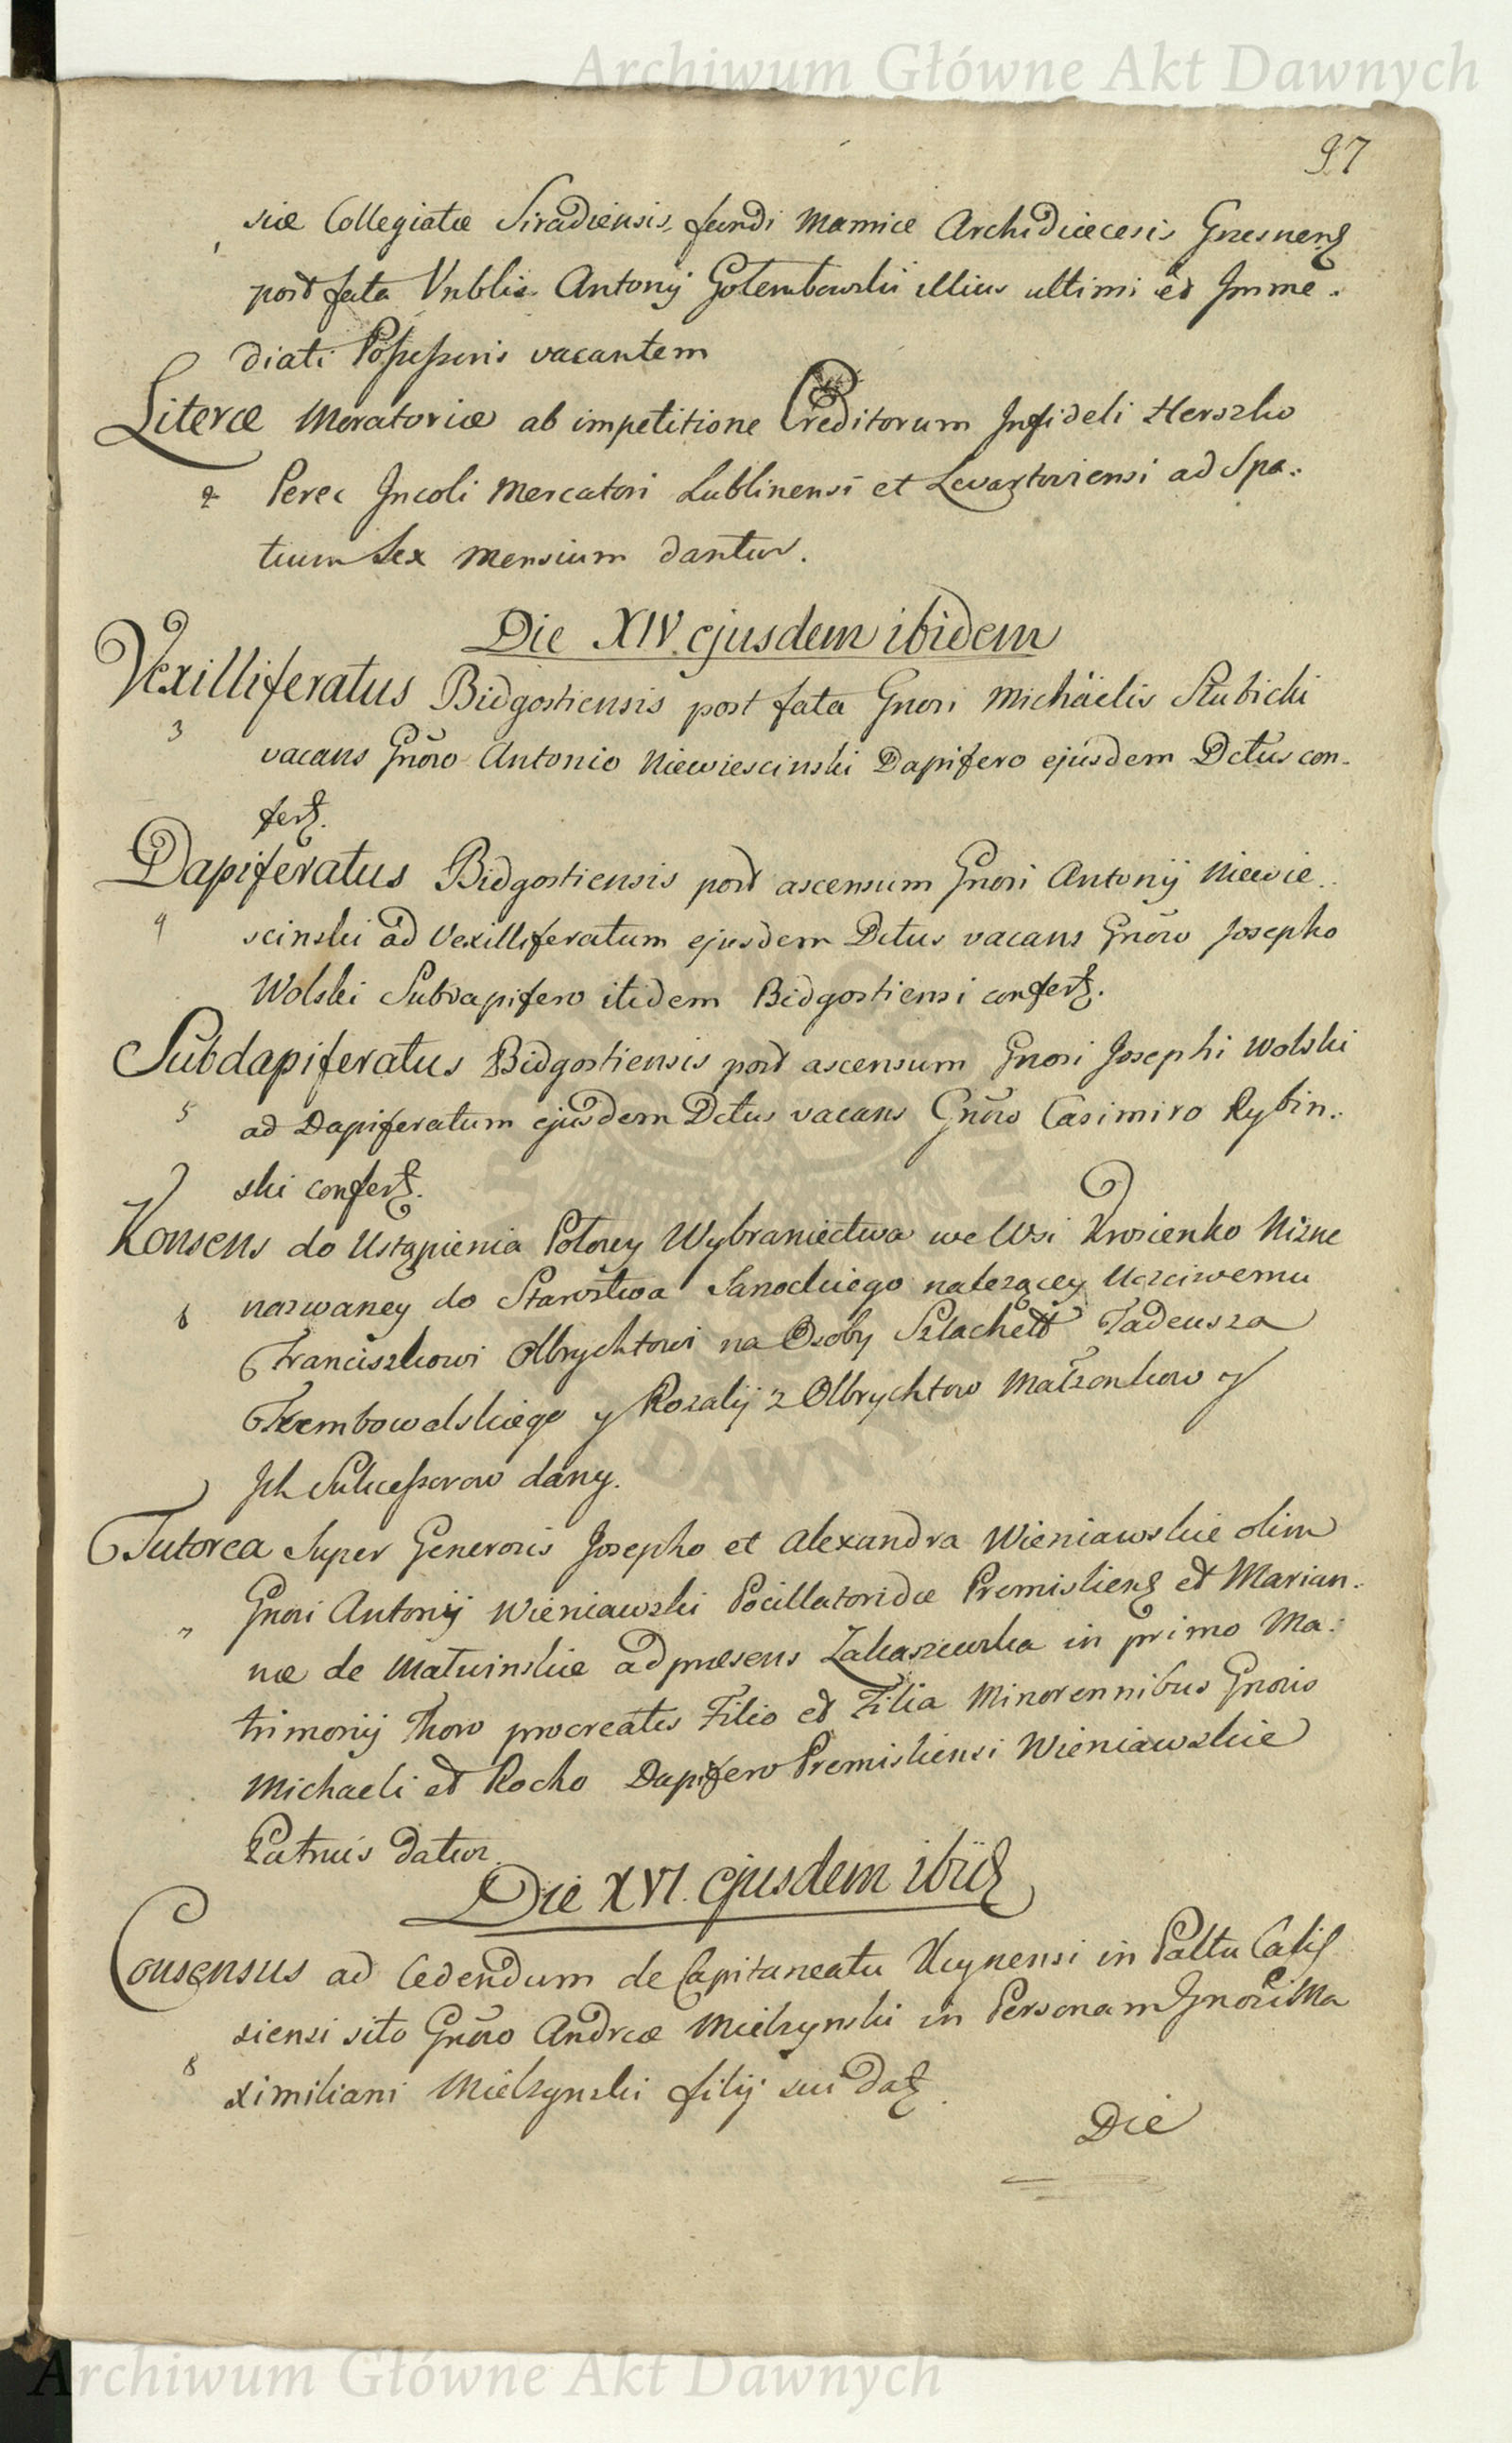 Archiwum Główne Akt Dawnych
97
siæ Collegiatæ Siradiensis, fundi Mamice Archidiæcesis Gnesnens
1
post fata Vnblis Antonij Gotembowski illius ultimi et Imme.
diati Possessoris vacantem
Literæ Moratoriæ ab impetitione Creditorum Infideli Herszko
2 Perec Incoli Mercatori Lublinensi et Levartoviensi ad Spa:
tium Sex Mensium dantur.
Die XIV. ejusdem ibidem
Vexilliferatus Bidgostiensis post fata Gnori Michäelis Słubicki
3 vacans Gnõro Antonio Niewiescinski Dapifero ejusdem Dctus con-
fert.
Dapiferatus Bidgostiensis post ascensum Gnori Antonij Niewie:
4 scinski ad Vexilliferatum ejusdem Dctus vacans Gnõro Josepho
Wolski Subdapifero itidem Bidgostiensi confert.
Subdapiferatus Bidgostiensis post ascensum Gnori Josephi Wolski
5 ad Dapiferatum ejusdem Dctus vacans Gnõro Casimiro Rybin:
ski confert.
Konsens do Ustąpienia Połowy Wybraniectwa we Wsi Krosienko Nizne
6 nazwaney do Starostwa Sanockiego nalezącey Uczciwemu
Franciszkowi Olbrychtowi na Osoby Szlachett Tadeusza
Trembowelskiego y Rozalij z Olbrychtow Małzonkow y
Jch Sukcessorow dany.
Tutorea Super Generosis Josepho et Alexandra Wieniawskie olim
" Gnori Antonij Wieniawski Pocillatoridæ Premisliens et Marian:
næ de Matwinskie ad præsens Zakaszewska in primo Ma:
trimonij Thoro procreatis Filio et Filia Minorennibus Gnoris
Michaeli et Rocho Dapifero Premisliensi Wieniawskie
Patruis datur.
Die XVI. ejusdem ibid
Consensus ad Cedendum de Capitaneatu Kcynensi in Palttu Calis
siensi sito Gnõro Andreæ Mielzynski in Personam Gnori Ma
8 ximiliani Mielzynski filij sui dat.
Die
Archiwum Główne Akt Dawnych